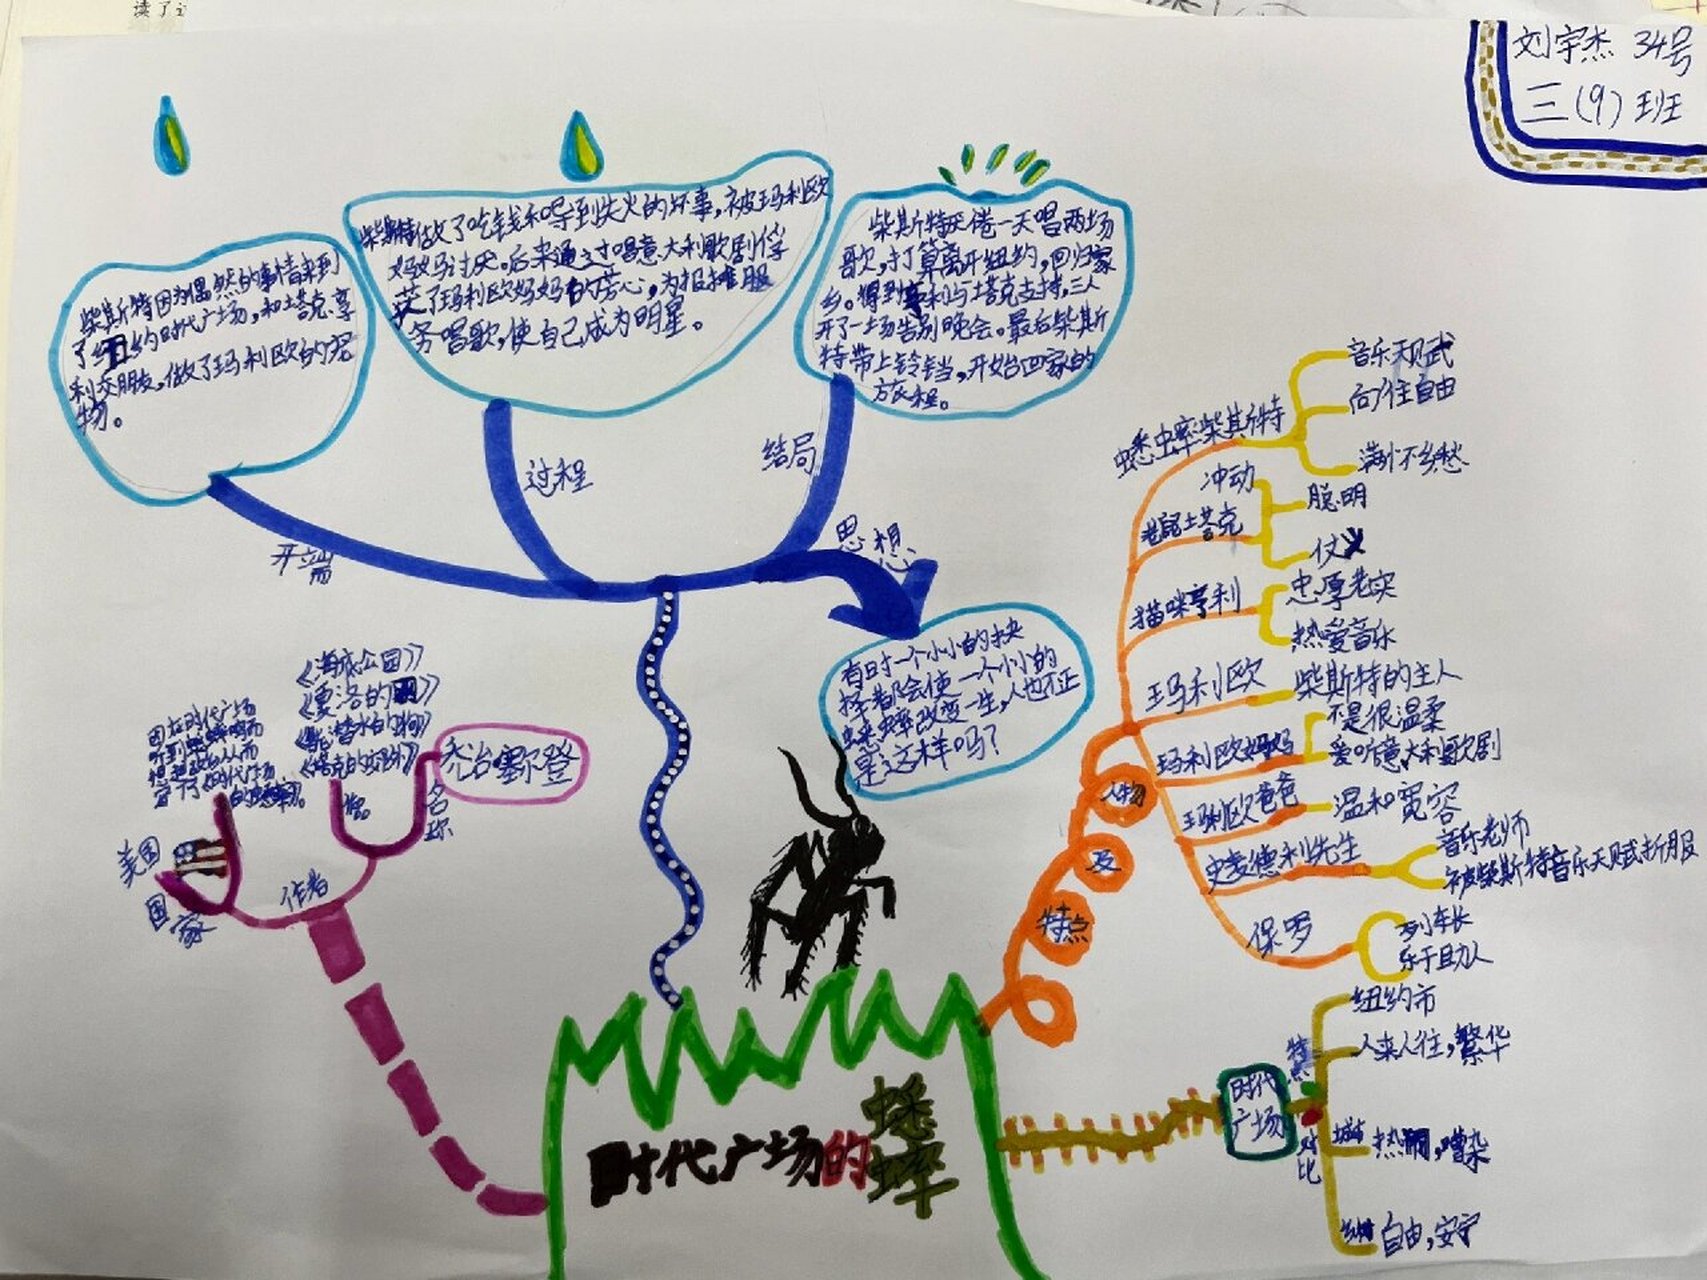 读了这
刘宇杰 34号
三(9)班
柴斯特因为偶然的事情来到
了纽约时代广场,和塔克、亨
利交朋友,做了玛利欧的宠
物。
开端
柴斯特做了吃钱和导到失火的坏事,被玛利欧
妈妈讨厌。后来通过唱意大利歌剧俘
获了玛利欧妈妈的芳心,为报摊服
务唱歌,使自己成为明星。
过程
柴斯特厌倦一天唱两场
歌,打算离开纽约,回归家
乡。得到亨利与塔克支持,三人
开了一场告别晚会。最后柴斯
特带上铃铛,开始回家的
旅程。
结局
思想
有时一个小小的抉
择都会使一个小小的
蟋蟀改变一生,人也不正
是这样吗?
《海底公园》
《夏洛的网》
因在时代广场
听到蟋蟀鸣
想起故乡从而
写下《时代广场
的蟋蟀》。
作品
乔治·塞尔登
名称
美国
国家
作者
人物
及
特点
蟋蟀柴斯特
音乐天赋
向往自由
满怀乡愁
老鼠塔克
冲动
聪明
仗义
猫咪亨利
忠厚老实
热爱音乐
玛利欧
柴斯特的主人
玛利欧妈妈
不是很温柔
爱听意大利歌剧
玛利欧爸爸
温和宽容
史麦德利先生
音乐老师
被柴斯特音乐天赋折服
保罗
列车长
乐于助人
时代
广场
特点
纽约市
人来人往,繁华
对比
城市
热闹,嘈杂
乡村
自由,安宁
时代广场的蟋蟀